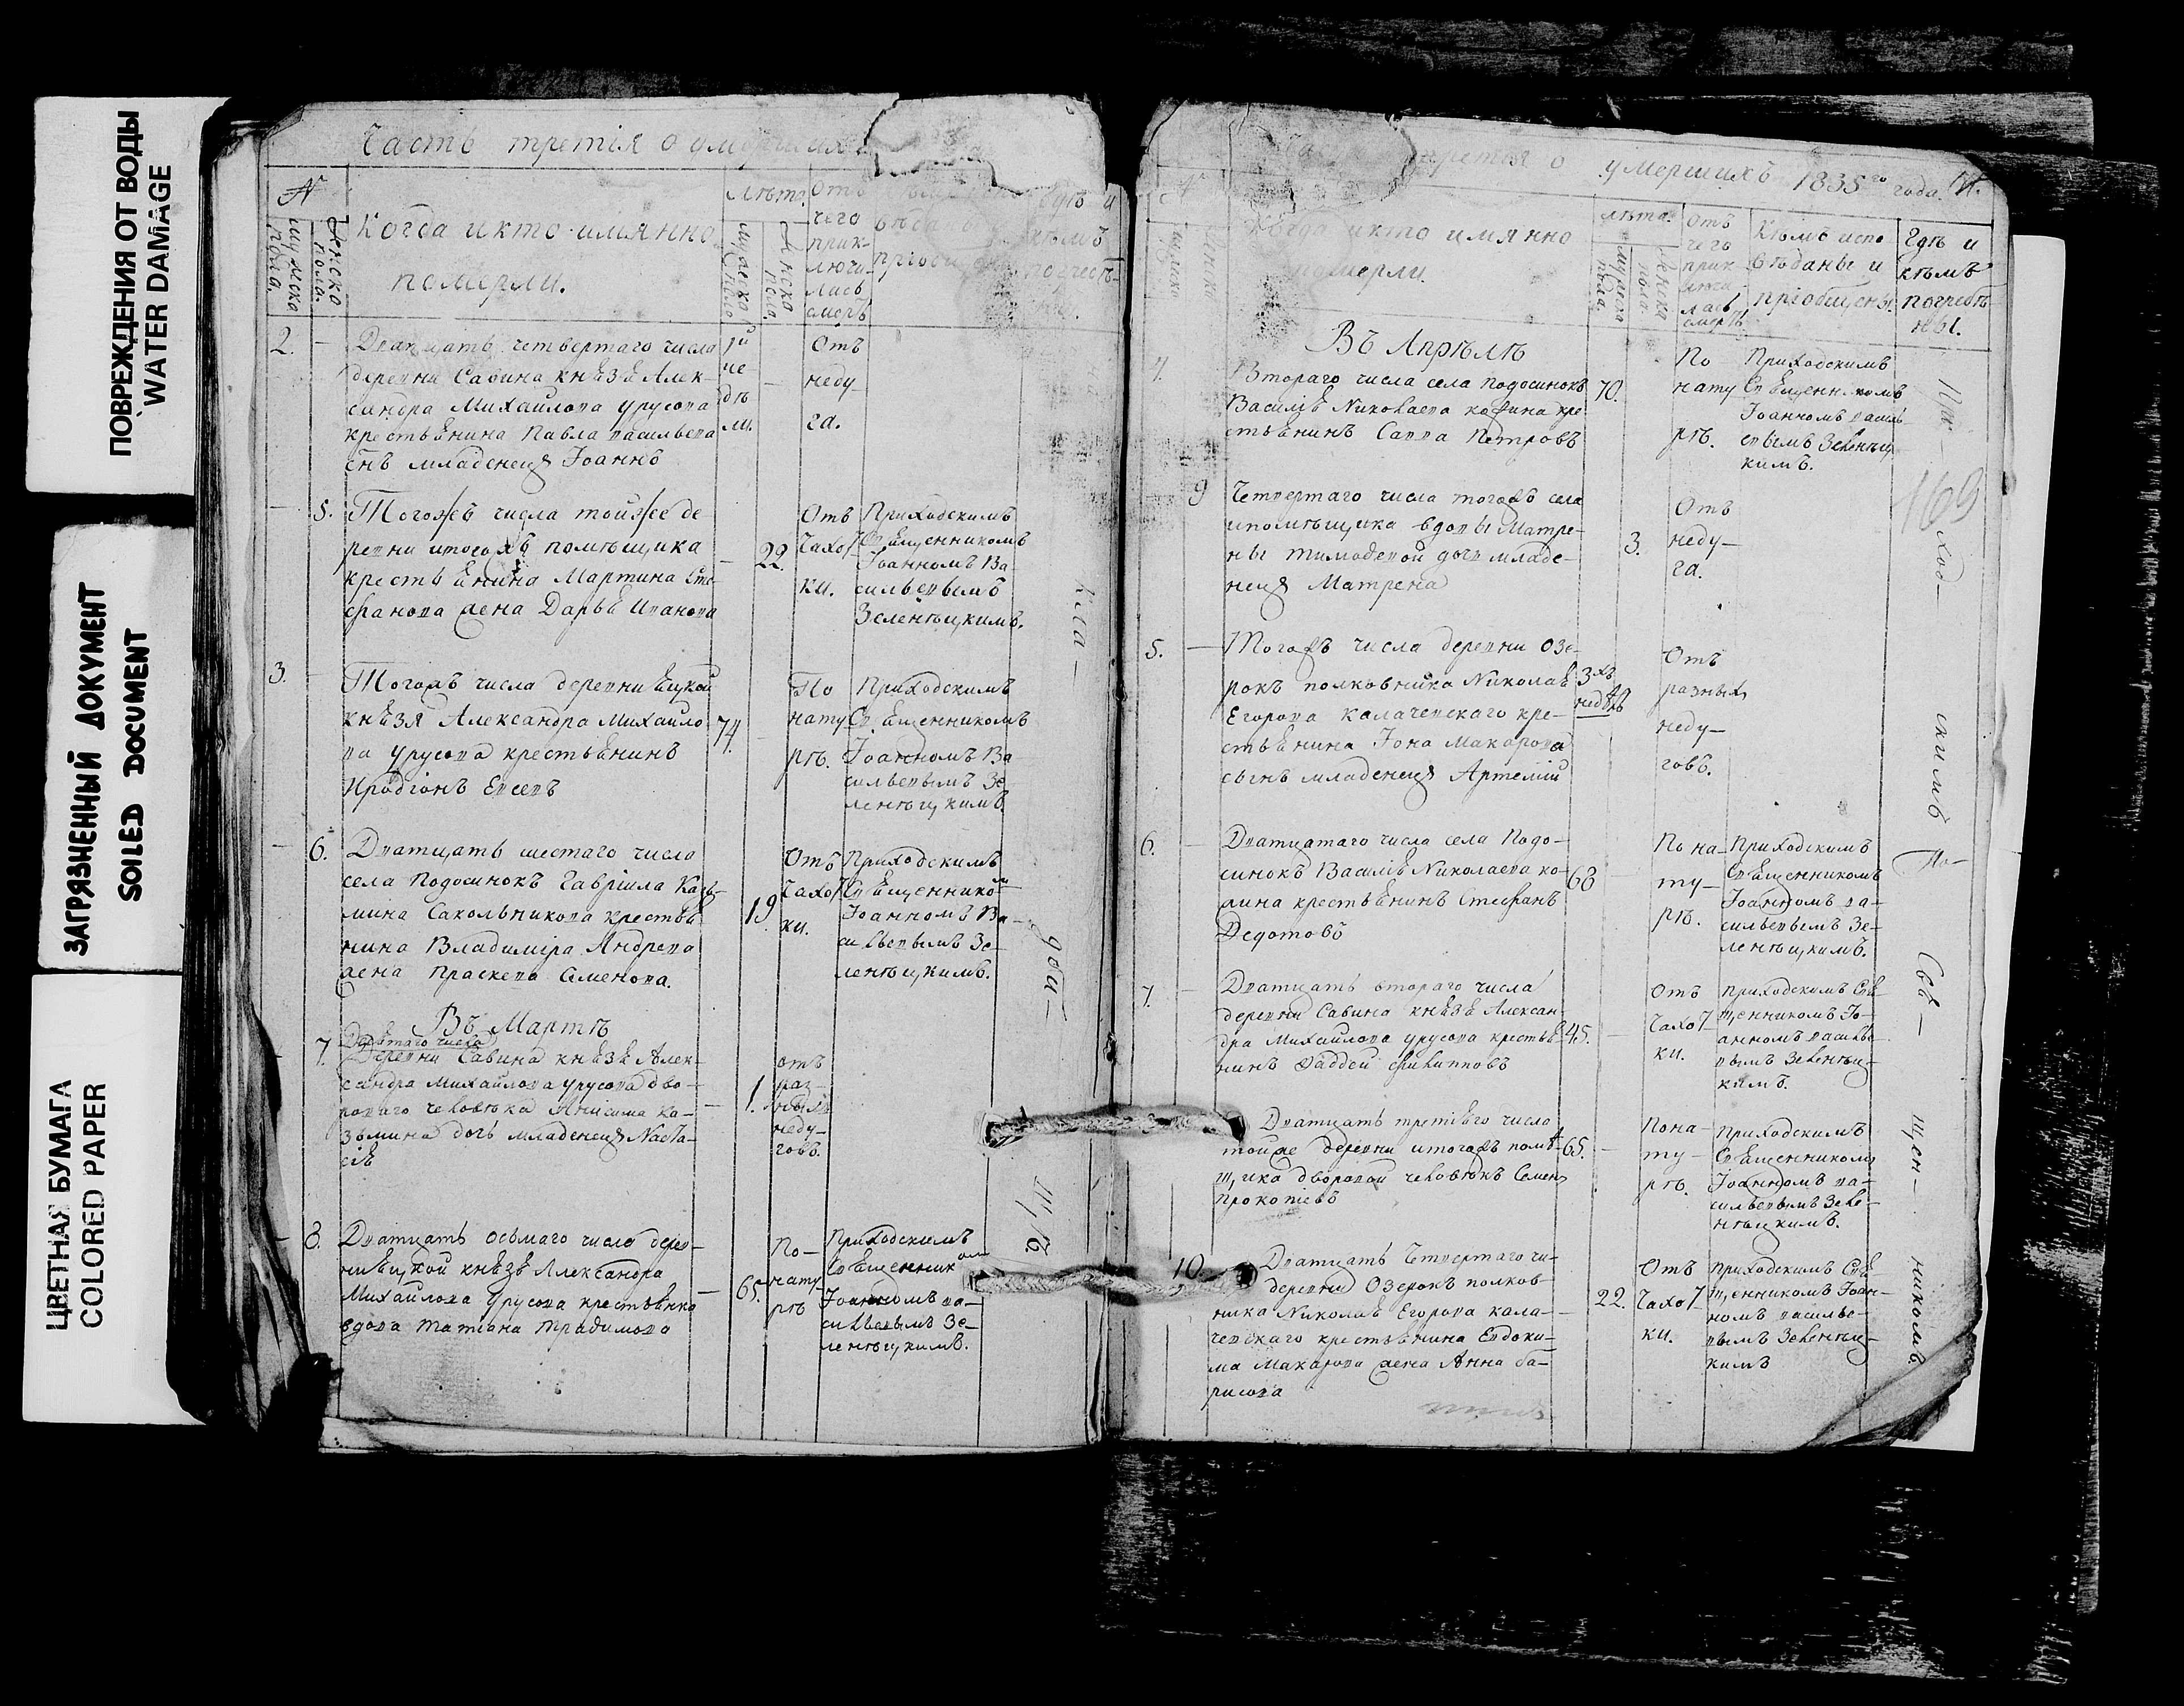 ПОВРЕЖДЕНИЯ ОТ ВОДЫ
WATER DAMAGE
ЗАГРЯЗНЕННЫЙ ДОКУМЕНТ
SOILED DOCUMENT
ЦВЕТНАЯ БУМАГА
COLORED PAPER
Часть третія о умершихъ
№
мужеска пола.
женска пола.
Когда и кто имянно
померли.
Лѣта.
мужеска пола
женска пола.
Отъ
чего
прик-
лючи-
лась
смерть
Гдѣ и
кѣмъ
погребе-
ны.
2.
Дватцать четвертаго числа
деревни Савина князя Алек-
сандра Михайлова Урусова
крестьянина Павла васильева
сынъ младенецъ Іоаннъ
3й
не
дѣ
ли.
Отъ
неду
га.
5.
Тогожъ числа тойже де
ревни итогожъ помѣщика
крестьянина Мартина Сте
фанова жена Дарья Иванова
22.
Отъ
Чахот
ки.
Приходскимъ
Священникомъ
Іоанномъ Ва-
сильевымъ
Зеленѣцкимъ.
3.
Тогожъ числа деревни Ецкой
князя Александра Михайло
ва Урусова крестьянинъ
Иродіонъ Евсевъ
74.
По
нату
рѣ.
Приходскимъ
Священникомъ
Іоанномъ Ва
сильевымъ Зе
ленѣцкимъ.
6.
Дватцать шестаго числа
села Подосинокъ ГавріилаКазь-
мина Сакольникова крестья
нина Владиміра Андрева
жена Праскева Семенова.
19
Отъ
Чахот
ки.
Приходскимъ
Священником
Іоанномъ Ва-
сильевымъ Зе-
ленѣцкимъ.
Въ Мартѣ
7.
Девятаго числа
Деревни Савина князя Алек-
сандра Михайлова Урусова дво-
роваго человѣка Анисима Ка-
зьмина дочь младенецъ Наста-
сія
1.
отъ
раз-
ныхъ
неду-
говъ.
8.
Дватцать осьмаго числа дерев-
ни Ецкой князя Александра
Михайлова Урусова крестьянка
вдова Татіана Традимова
65.
По-
нату-
рѣ
Приходскимъ
Священникомъ
Іоанномъ ва-
сильевымъ Зе-
ленѣцкимъ.
кла-
дби-
щѣ.
третія о умершихъ 1835го года.
№
мужеска
женска
Когда икто имянно
померли.
лѣта.
мужеска пола.
женска пола.
Отъ
чего
прик
люча-
лась
смерть
Кѣмъ испо
вѣданы и
пріобщены.
Гдѣ и
кѣмъ
погребе
ны.
Въ Апрѣлѣ
4.
Втораго числа села Подосинокъ
Василья Николаева кожина кре
стьянинъ Савва Петровъ
70.
По
нату
рѣ.
Приходскимъ
Священникомъ
Іоанномъ василь
евымъ Зеленѣц
кимъ.
9
Четвертаго числа тогожъ села
ипомѣщика вдовы Матре-
ны Тимофевой дочь младе-
нецъ Матрена
3.
Отъ
неду-
га.
5.
Тогожъ числа деревни Озе-
рокъ полковника Николая
Егорова Калачевскаго кре-
стьянина Іона Макарова
сынъ младенецъ Артемій
3хъ
недѣль
Отъ
разныхъ
неду-
говъ.
6.
Дватцатаго числа села Подо-
синокъ Василья Николаева ко-
жина крестьянинъ Стефанъ
Федотовъ
68
По на-
ту-
рѣ.
Приходскимъ
Священникомъ
Іоанномъ ва-
сильевымъ Зе-
ленѣцкимъ.
7.
Дватцать втораго числа
деревни Савина князя Алексан-
дра Михайлова Урусова крестья-
нинъ Фаддей Филипповъ
45.
Отъ
Чахот
ки.
Приходскимъ Свя-
щенникомъ Іо-
анномъ василье
вымъ Зеленѣц-
кимъ.
Дватцать третьяго числа
тойже деревни итогожъ помѣ-
щика дворовой человѣкъ Семенъ
Прокопіевъ
65.
Пона-
ту-
рѣ.
Приходскимъ
Священникомъ
Іоанномъ ва-
сильевымъ Зеле-
нѣцкимъ.
10.
Дватцать Четвертаго чи-
деревни Озерокъ полков-
ника Николая Егорова Кала-
чевскаго крестьянина Евдоки-
ма Макарова жена Анна Ба-
рисова
22.
Отъ
Чахот
ки.
Приходскимъ Свя
щенникомъ Іоан-
номъ василье-
вымъ Зеленѣц-
кимъ
169
ход-
скимъ
Свя-
щен-
никомъ